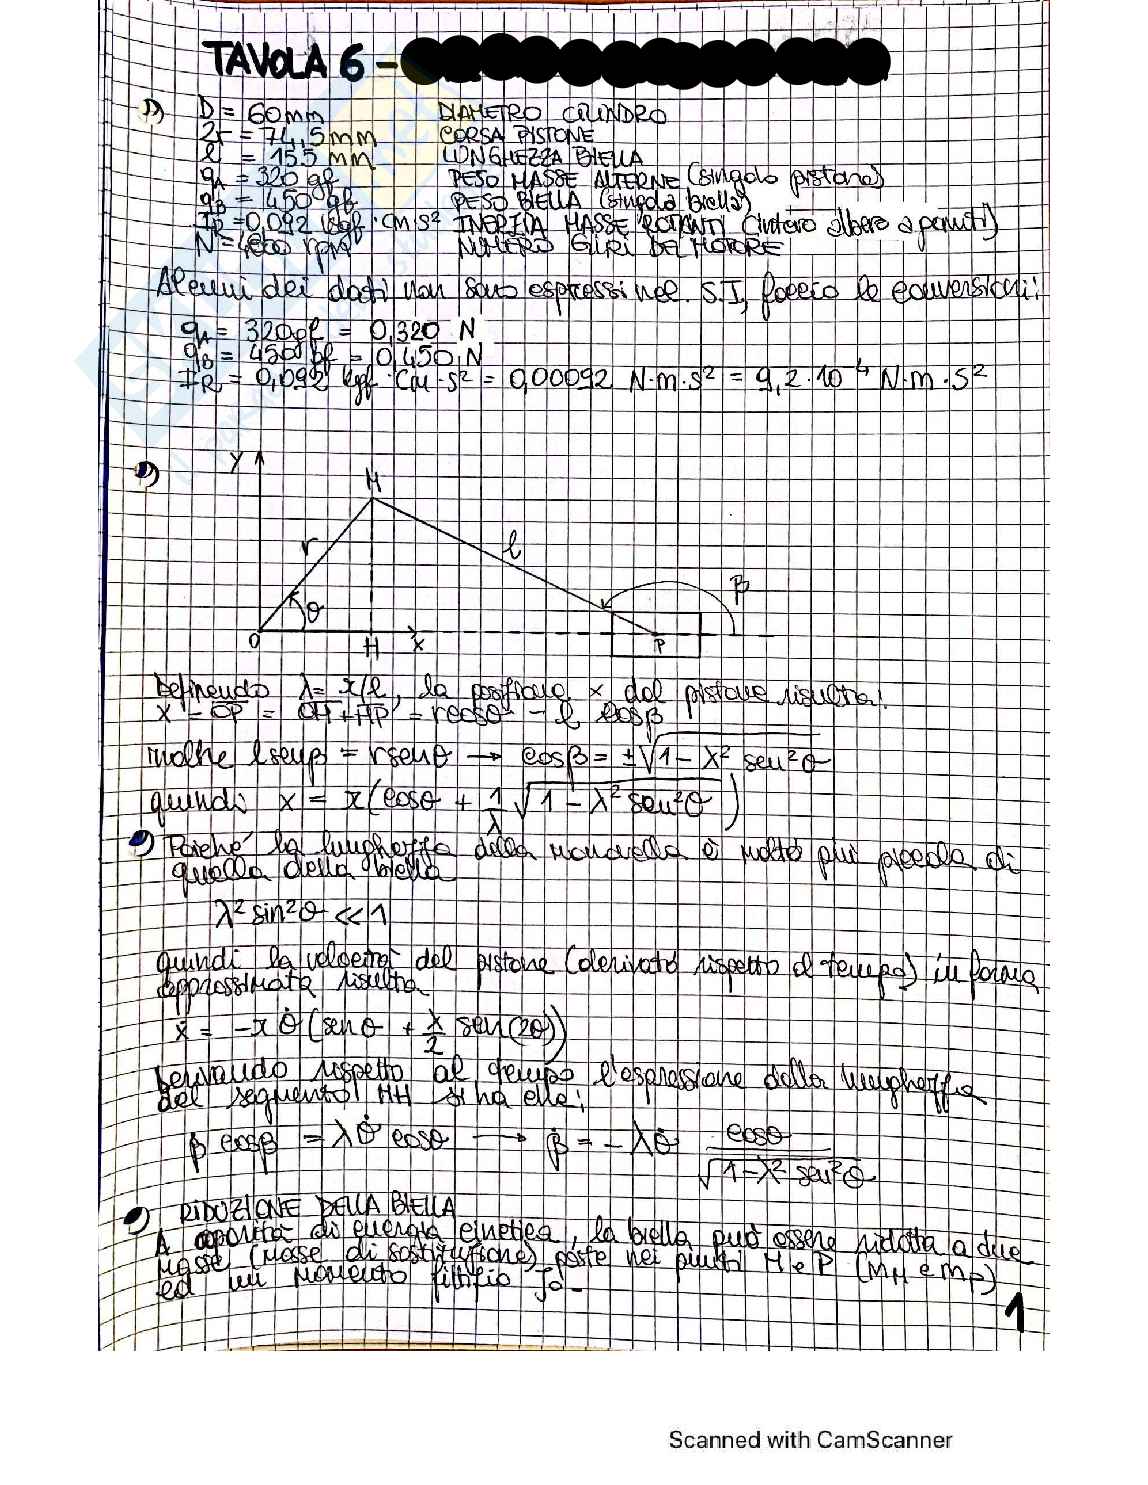 TAVOLA 6 -
1) D = 60mm DIAMETRO CILINDRO
2r = 74,5mm CORSA PISTONE
l = 155 mm LUNGHEZZA BIELLA
qA = 320 gf PESO MASSE ALTERNE (singolo pistone)
qB = 450 gf PESO BIELLA (singola biella)
IR = 0,092 kgf·cm·s² INERZIA MASSE ROTANTI (intero albero a gomiti)
N = 4800 rpm NUMERO GIRI DEL MOTORE
Alcuni dei dati non sono espressi nel S.I, faccio le conversioni:
qA = 320gf = 0,320 N
qB = 450 gf = 0,450 N
IR = 0,092 kgf·cm·s² = 0,00092 N·m·s² = 9,2·10⁻⁴ N·m·s²
y
M
r
l
β
θ
O
H
x
P
Definendo λ= r/l, la posizione x del pistone risulta:
x = OP = OH + HP = rcosθ - l cosβ
inoltre lsenβ = rsenθ → cosβ = ±√1 - λ² sen²θ
quindi x = r(cosθ + 1/λ √1 - λ² sen²θ)
Poiché la lunghezza della manovella è molto più piccola di
quella della biella
λ² sin²θ << 1
quindi la velocità del pistone (derivata rispetto al tempo) in forma
approssimata risulta
ẋ = -r θ̇ (senθ + λ/2 sen(2θ))
Derivando rispetto al tempo l'espressione della lunghezza
del segmento MH si ha che:
β̇ cosβ = λθ̇ cosθ → β̇ = -λθ̇ cosθ/√1-λ² sen²θ
RIDUZIONE DELLA BIELLA
A parità di energia cinetica, la biella può essere ridotta a due
masse (masse di sostituzione) poste nei punti M e P (mM e mP)
ed un momento fittizio J0.
1
Scanned with CamScanner